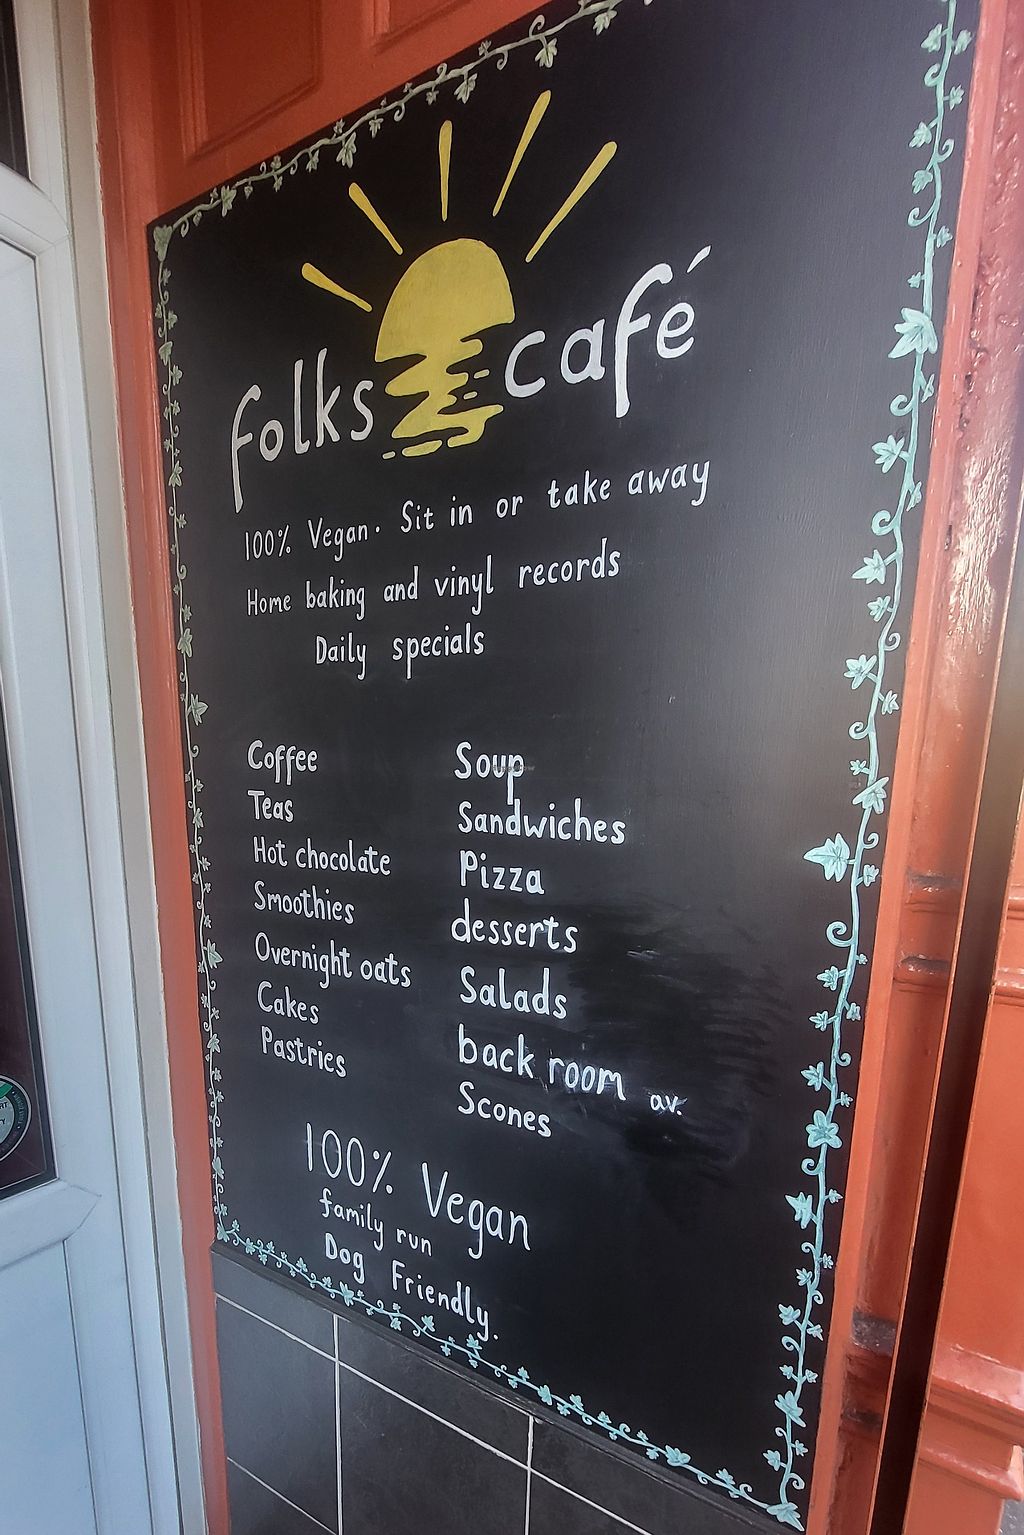 folks café
100% Vegan. Sit in or take away
Home baking and vinyl records
Daily specials
Coffee
Teas
Hot chocolate
Smoothies
Overnight oats
Cakes
Pastries
Soup
Sandwiches
Pizza
desserts
Salads
back room av.
Scones
100% Vegan
family run
Dog Friendly.